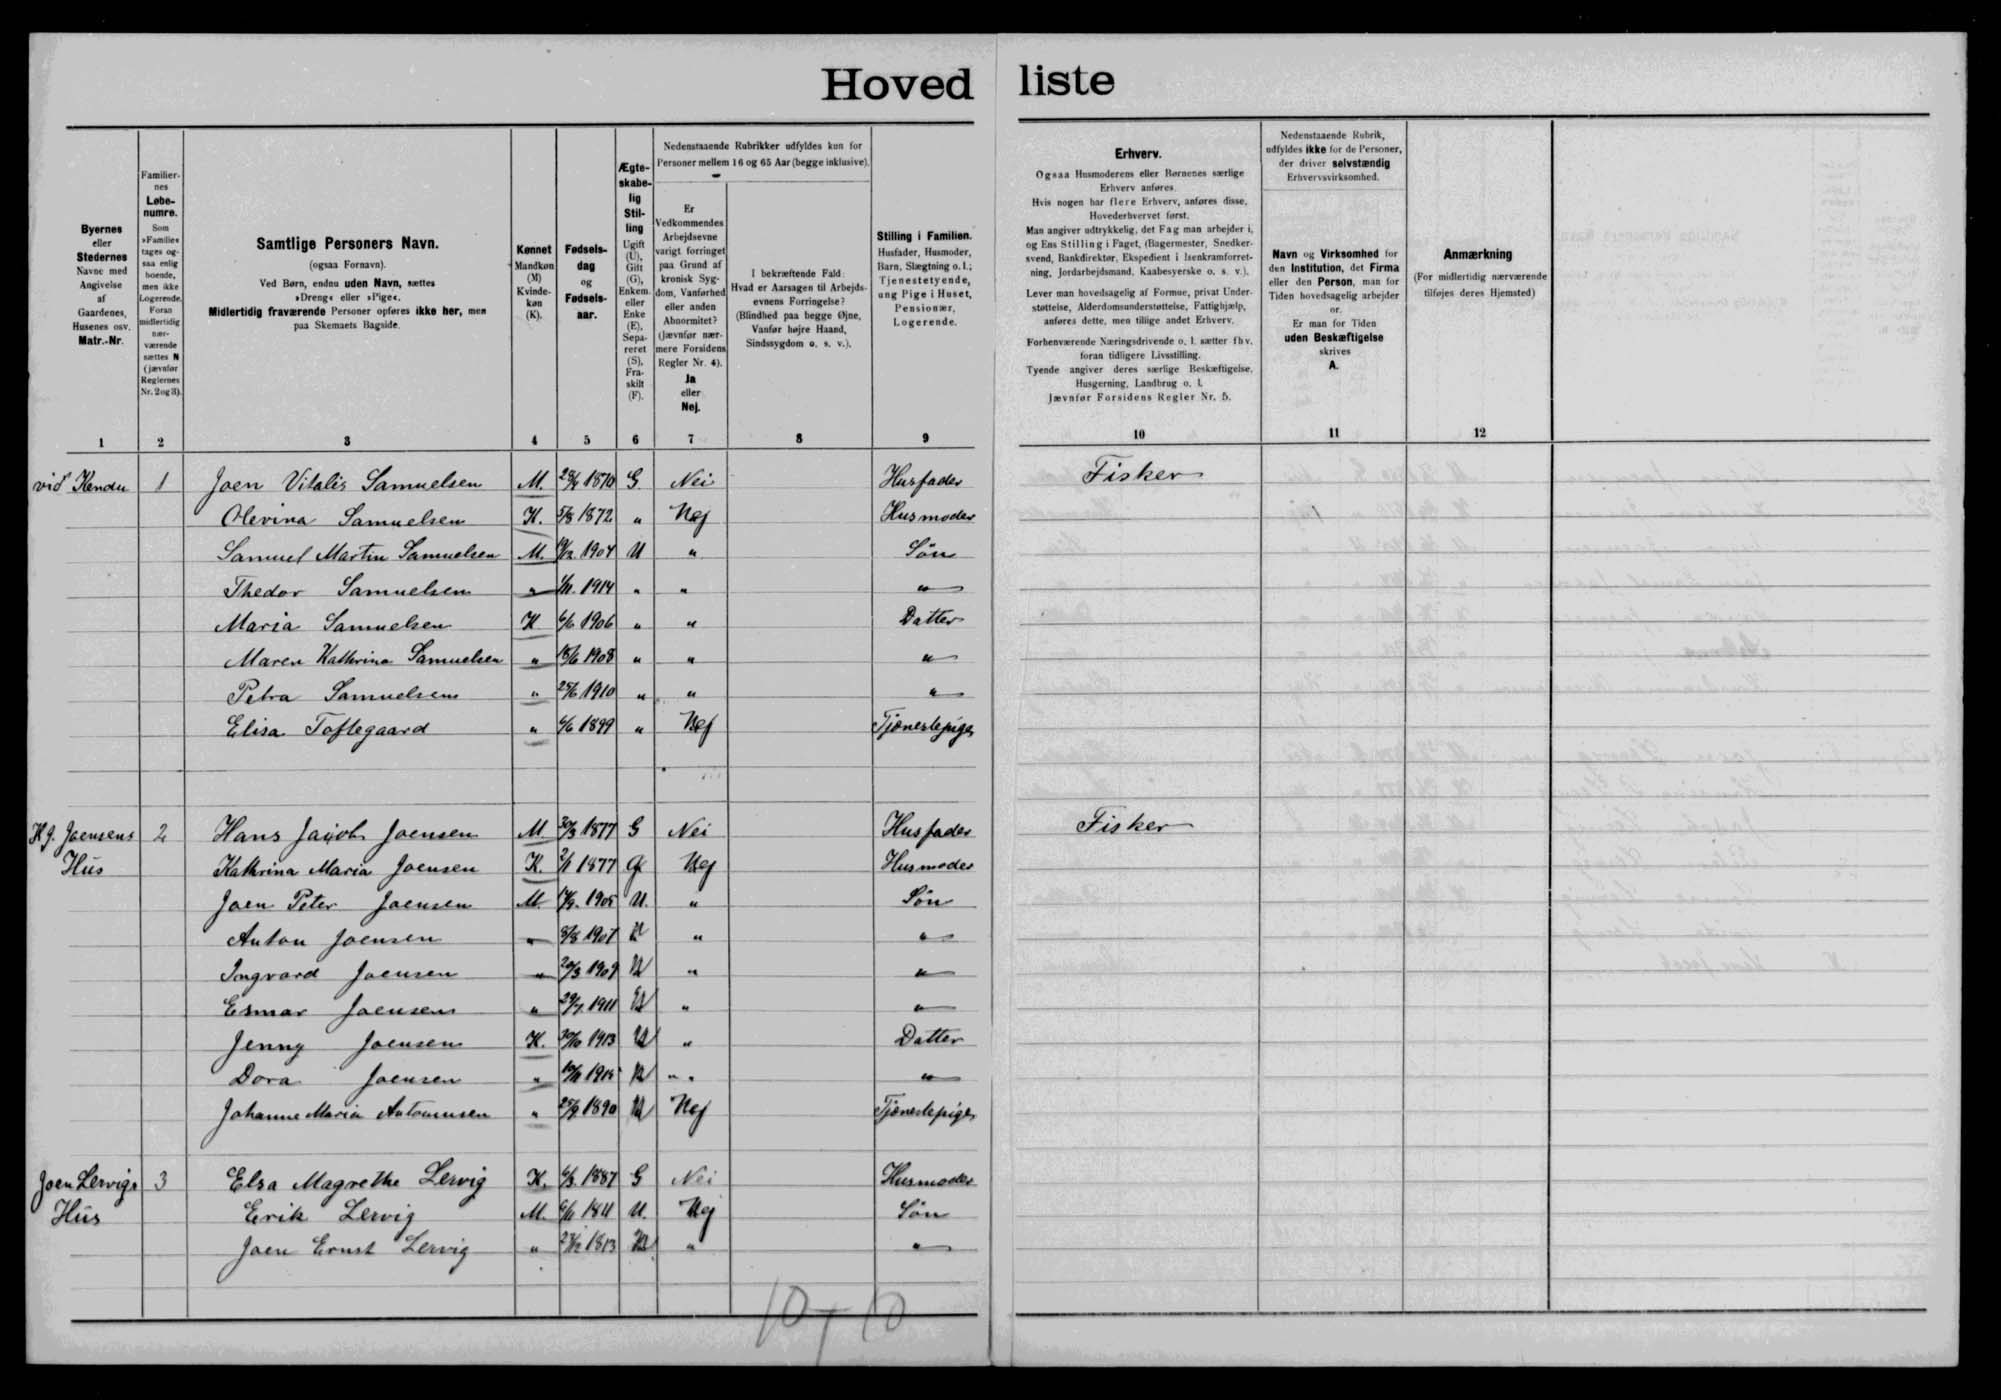 Hoved liste
Byernes eller Stedernes Navne med Angivelse af Gaardenes, Husenes osv. Matr.-Nr.
Familiernes Løbenumre. Som »Familie« tages ogsaa enlig boende, men ikke Logerende. Foran midlertidig nærværende sættes N (jævnfør Reglernes Nr. 2 og 3).
Samtlige Personers Navn. (ogsaa Fornavn). Ved Børn, endnu uden Navn, sættes »Dreng« eller »Pige«. Midlertidig fraværende Personer opføres ikke her, men paa Skemaets Bagside.
Kønnet Mandkøn (M) Kvindekøn (K).
Fødselsdag og Fødselsaar.
Ægteskabelig Stilling Ugift (U), Gift (G), Enkem. eller Enke (E), Separeret (S), Fraskilt (F).
Nedenstaaende Rubrikker udfyldes kun for Personer mellem 16 og 65 Aar (begge inklusive).
Er Vedkommendes Arbejdsevne varigt forringet paa Grund af kronisk Sygdom, Vanførhed eller anden Abnormitet? (Jævnfør nærmere Forsidens Regler Nr. 4). Ja eller Nej.
I bekræftende Fald: Hvad er Aarsagen til Arbejdsevnens Forringelse? (Blindhed paa begge Øjne, Vanfør højre Haand, Sindssygdom o. s. v.).
Stilling i Familien. Husfader, Husmoder, Barn, Slægtning o. l.; Tjenestetyende, ung Pige i Huset, Pensionær, Logerende.
Erhverv.
Ogsaa Husmoderens eller Børnenes særlige Erhverv anføres.
Hvis nogen har flere Erhverv, anføres disse, Hovederhvervet først.
Man angiver udtrykkelig, det Fag man arbejder i, og Ens Stilling i Faget, (Bagermester, Snedkersvend, Bankdirektør, Ekspedient i Isenkramforretning, Jordarbejdsmand, Kaabesyerske o. s. v.).
Lever man hovedsagelig af Formue, privat Understøttelse, Alderdomsunderstøttelse, Fattighjælp, anføres dette, men tillige andet Erhverv.
Forhenværende Næringsdrivende o. l. sætter fhv. foran tidligere Livsstilling.
Tyende angiver deres særlige Beskæftigelse, Husgerning, Landbrug o. l.
Jævnfør Forsidens Regler Nr. 5.
Nedenstaaende Rubrik, udfyldes ikke for de Personer, der driver selvstændig Erhvervsvirksomhed.
Navn og Virksomhed for den Institution, det Firma eller den Person, man for Tiden hovedsagelig arbejder or.
Er man for Tiden uden Beskæftigelse skrives A.
Anmærkning (For midlertidig nærværende tilføjes deres Hjemsted)
1 2 3 4 5 6 7 8 9 10 11 12
við Kendu 1 Joen Vitalis Samuelsen M. 1870 G. Nei Husfader Fisker
Olevina Samuelsen K. 5/8 1872 " Nej Husmoder
Samuel Martin Samuelsen M. 19/12. 1904 U " Søn
Thedor Samuelsen " 1/11. 1914 " " "
Maria Samuelsen K 6/6 1906 " " Datter
Maren Kathrina Samuelsen " 18/6 1908 " " "
Petra Samuelsen " 25/6 1910 " " "
Elisa Toftegaard " 6/6 1899 " Nej Tjenestepige
H.J. Joensens 2 Hans Jacob Joensen M 30/3 1877 G Nei Husfader Fisker
Hus Kathrina Maria Joensen K. 2/1 1877 G Nej Husmoder
Joen Peter Joensen M. 1905 U. " Søn
Anton Joensen " 8/8 1907 U " "
Ingvard Joensen " 20/3 1909 U " "
Esmar Joensen " 29/7. 1911 U " "
Jenny Joensen K. 30/10 1913 U " Datter
Dora Joensen " 10/11 1915 U " " "
Johanne Maria Antoniusen " 25/9 1890 U Nej Tjenestepige
Joen Lervigs 3 Elsa Magrethe Lervig K. 6/3. 1887 G Nei Husmoder
Hus Erik Lervig M. 6/11 1811 U. Nej Søn
Joen Ernst Lervig " 1813 U " "
10 + 10